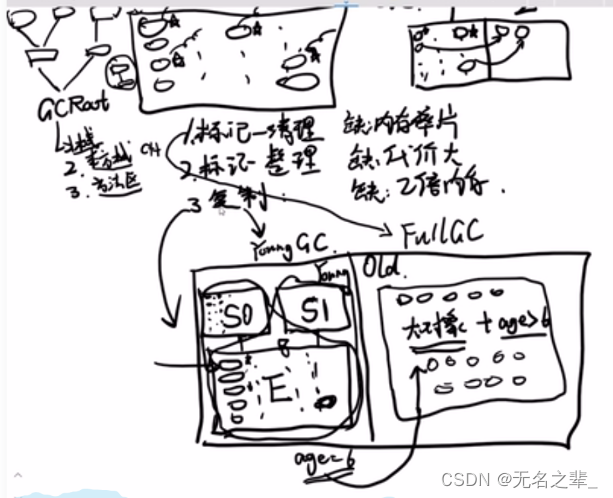 GCRoot
1.栈
2.
3.方法区
1.标记-清理 缺:内存碎片
2.标记-整理 缺:代价大
3 复制 缺:2倍内存.
YoungGC FullGC
Young Old
S0 S1
8
E
大对象 + age>6
age=6
CSDN @无名之辈_